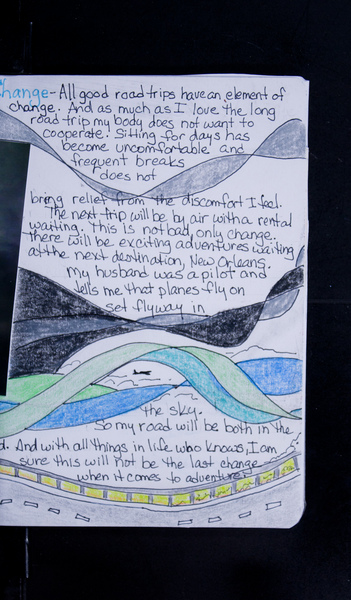 Change - All good road trips have an element of
change. And as much as I love the long
road trip my body does not want to
cooperate. Sitting for days has
become uncomfortable and
frequent breaks
does not
bring relief from the discomfort I feel.
The next trip will be by air with a rental
waiting. This is not bad, only change.
There will be exciting adventures waiting
at the next destination, New Orleans.
My husband was a pilot and
tells me that planes fly on
set flyway in
the sky.
So my road will be both in the
d. And with all things in life who knows, I am
sure this will not be the last change
when it comes to adventures